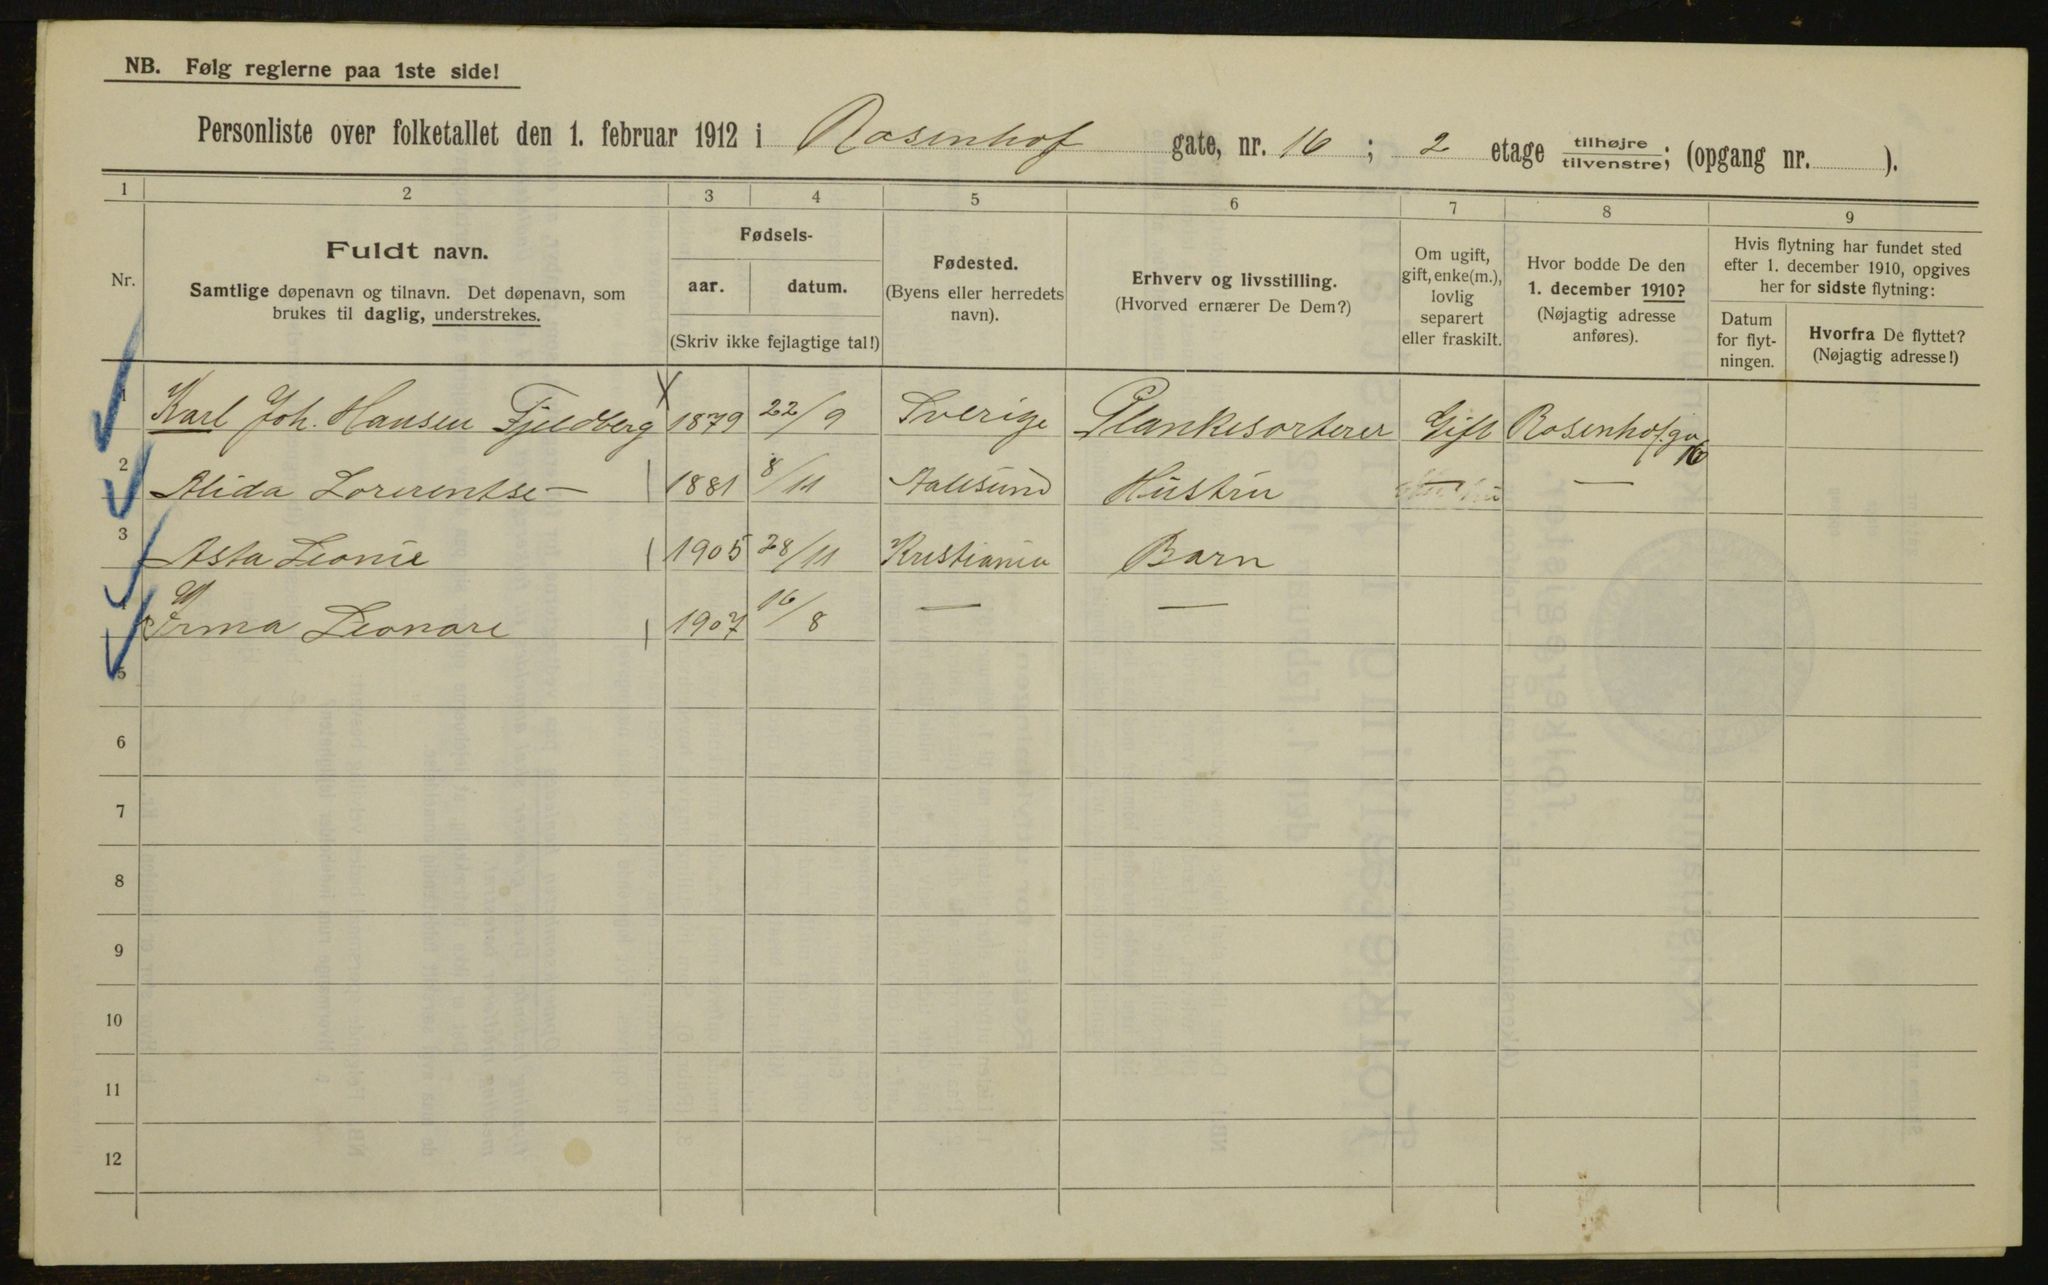 NB. Følg reglerne paa 1ste side!
Personliste over folketallet den 1. februar 1912 i Rosenhof gate, nr. 16 ; 2 etage tilhøjre tilvenstre; (opgang nr. ).
1 2 3 4 5 6 7 8 9
Nr.
Fuldt navn.
Samtlige døpenavn og tilnavn. Det døpenavn, som
brukes til daglig, understrekes.
Fødsels-
aar. datum.
(Skriv ikke fejlagtige tal!)
Fødested.
(Byens eller herredets
navn).
Erhverv og livsstilling.
(Hvorved ernærer De Dem?)
Om ugift,
gift, enke(m.),
lovlig
separert
eller fraskilt.
Hvor bodde De den
1. december 1910?
(Nøjagtig adresse
anføres).
Hvis flytning har fundet sted
efter 1. december 1910, opgives
her for sidste flytning:
Datum
for flyt-
ningen.
Hvorfra De flyttet?
(Nøjagtig adresse!)
1 Karl Joh. Hansen Fjeldberg 1879 22/9 Sverige Plankesorterer Gift Rosenhofga 16
2 Alida Lorerentse — 1881 8/11 Aalesund Hustru —
3 Asta Leonie 1905 28/11 Kristiania Barn
4 Irma Leonore 1907 16/8 — —
5
6
7
8
9
10
11
12